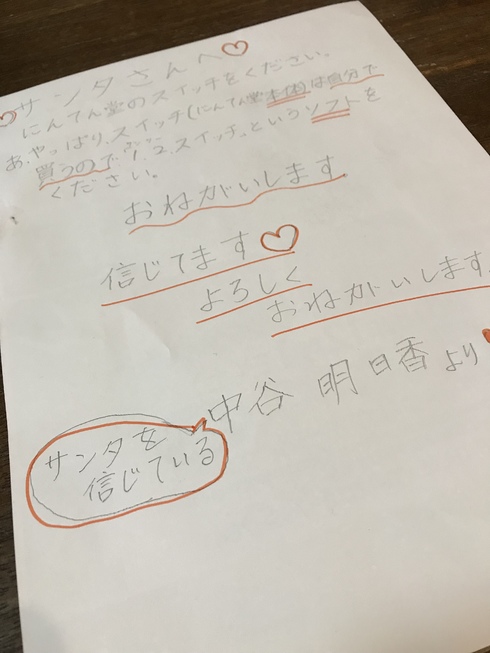 サンタさんへ
にんてん堂のスイッチをください。
あ、やっぱり、スイッチ(にんてん堂本体)は自分で
買うので、1.2.スイッチ。というソフトを
ください。
おねがいします
信じてます
よろしく
おねがいします。
中谷 明日香より
サンタを
信じている